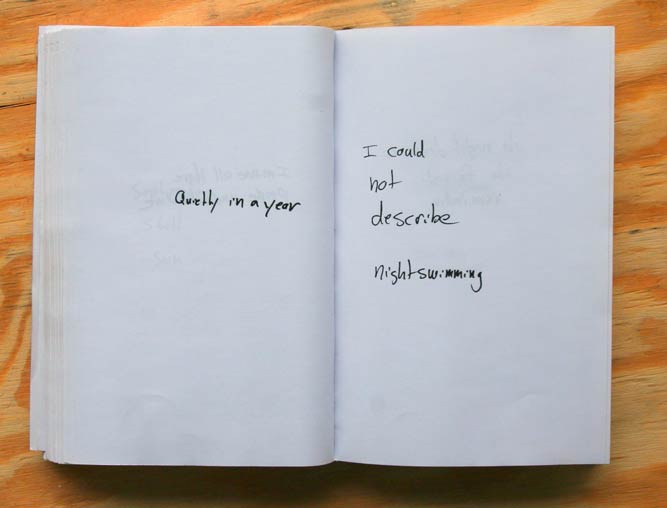 Quietly in a year
I could
not
describe
nightswimming